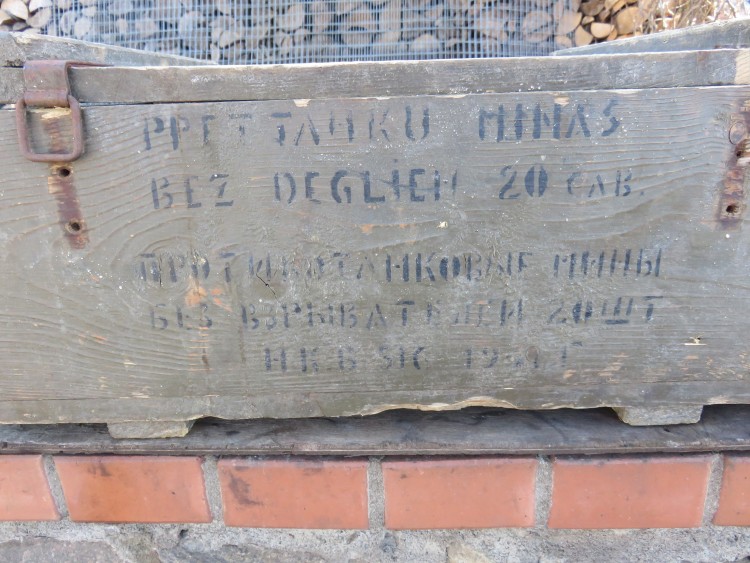 PRETTANKU MINAS
BEZ DEGLIEM 20 GAB.
ПРОТИВОТАНКОВЫЕ МИНЫ
БЕЗ ВЗРЫВАТЕЛЕЙ 20 ШТ